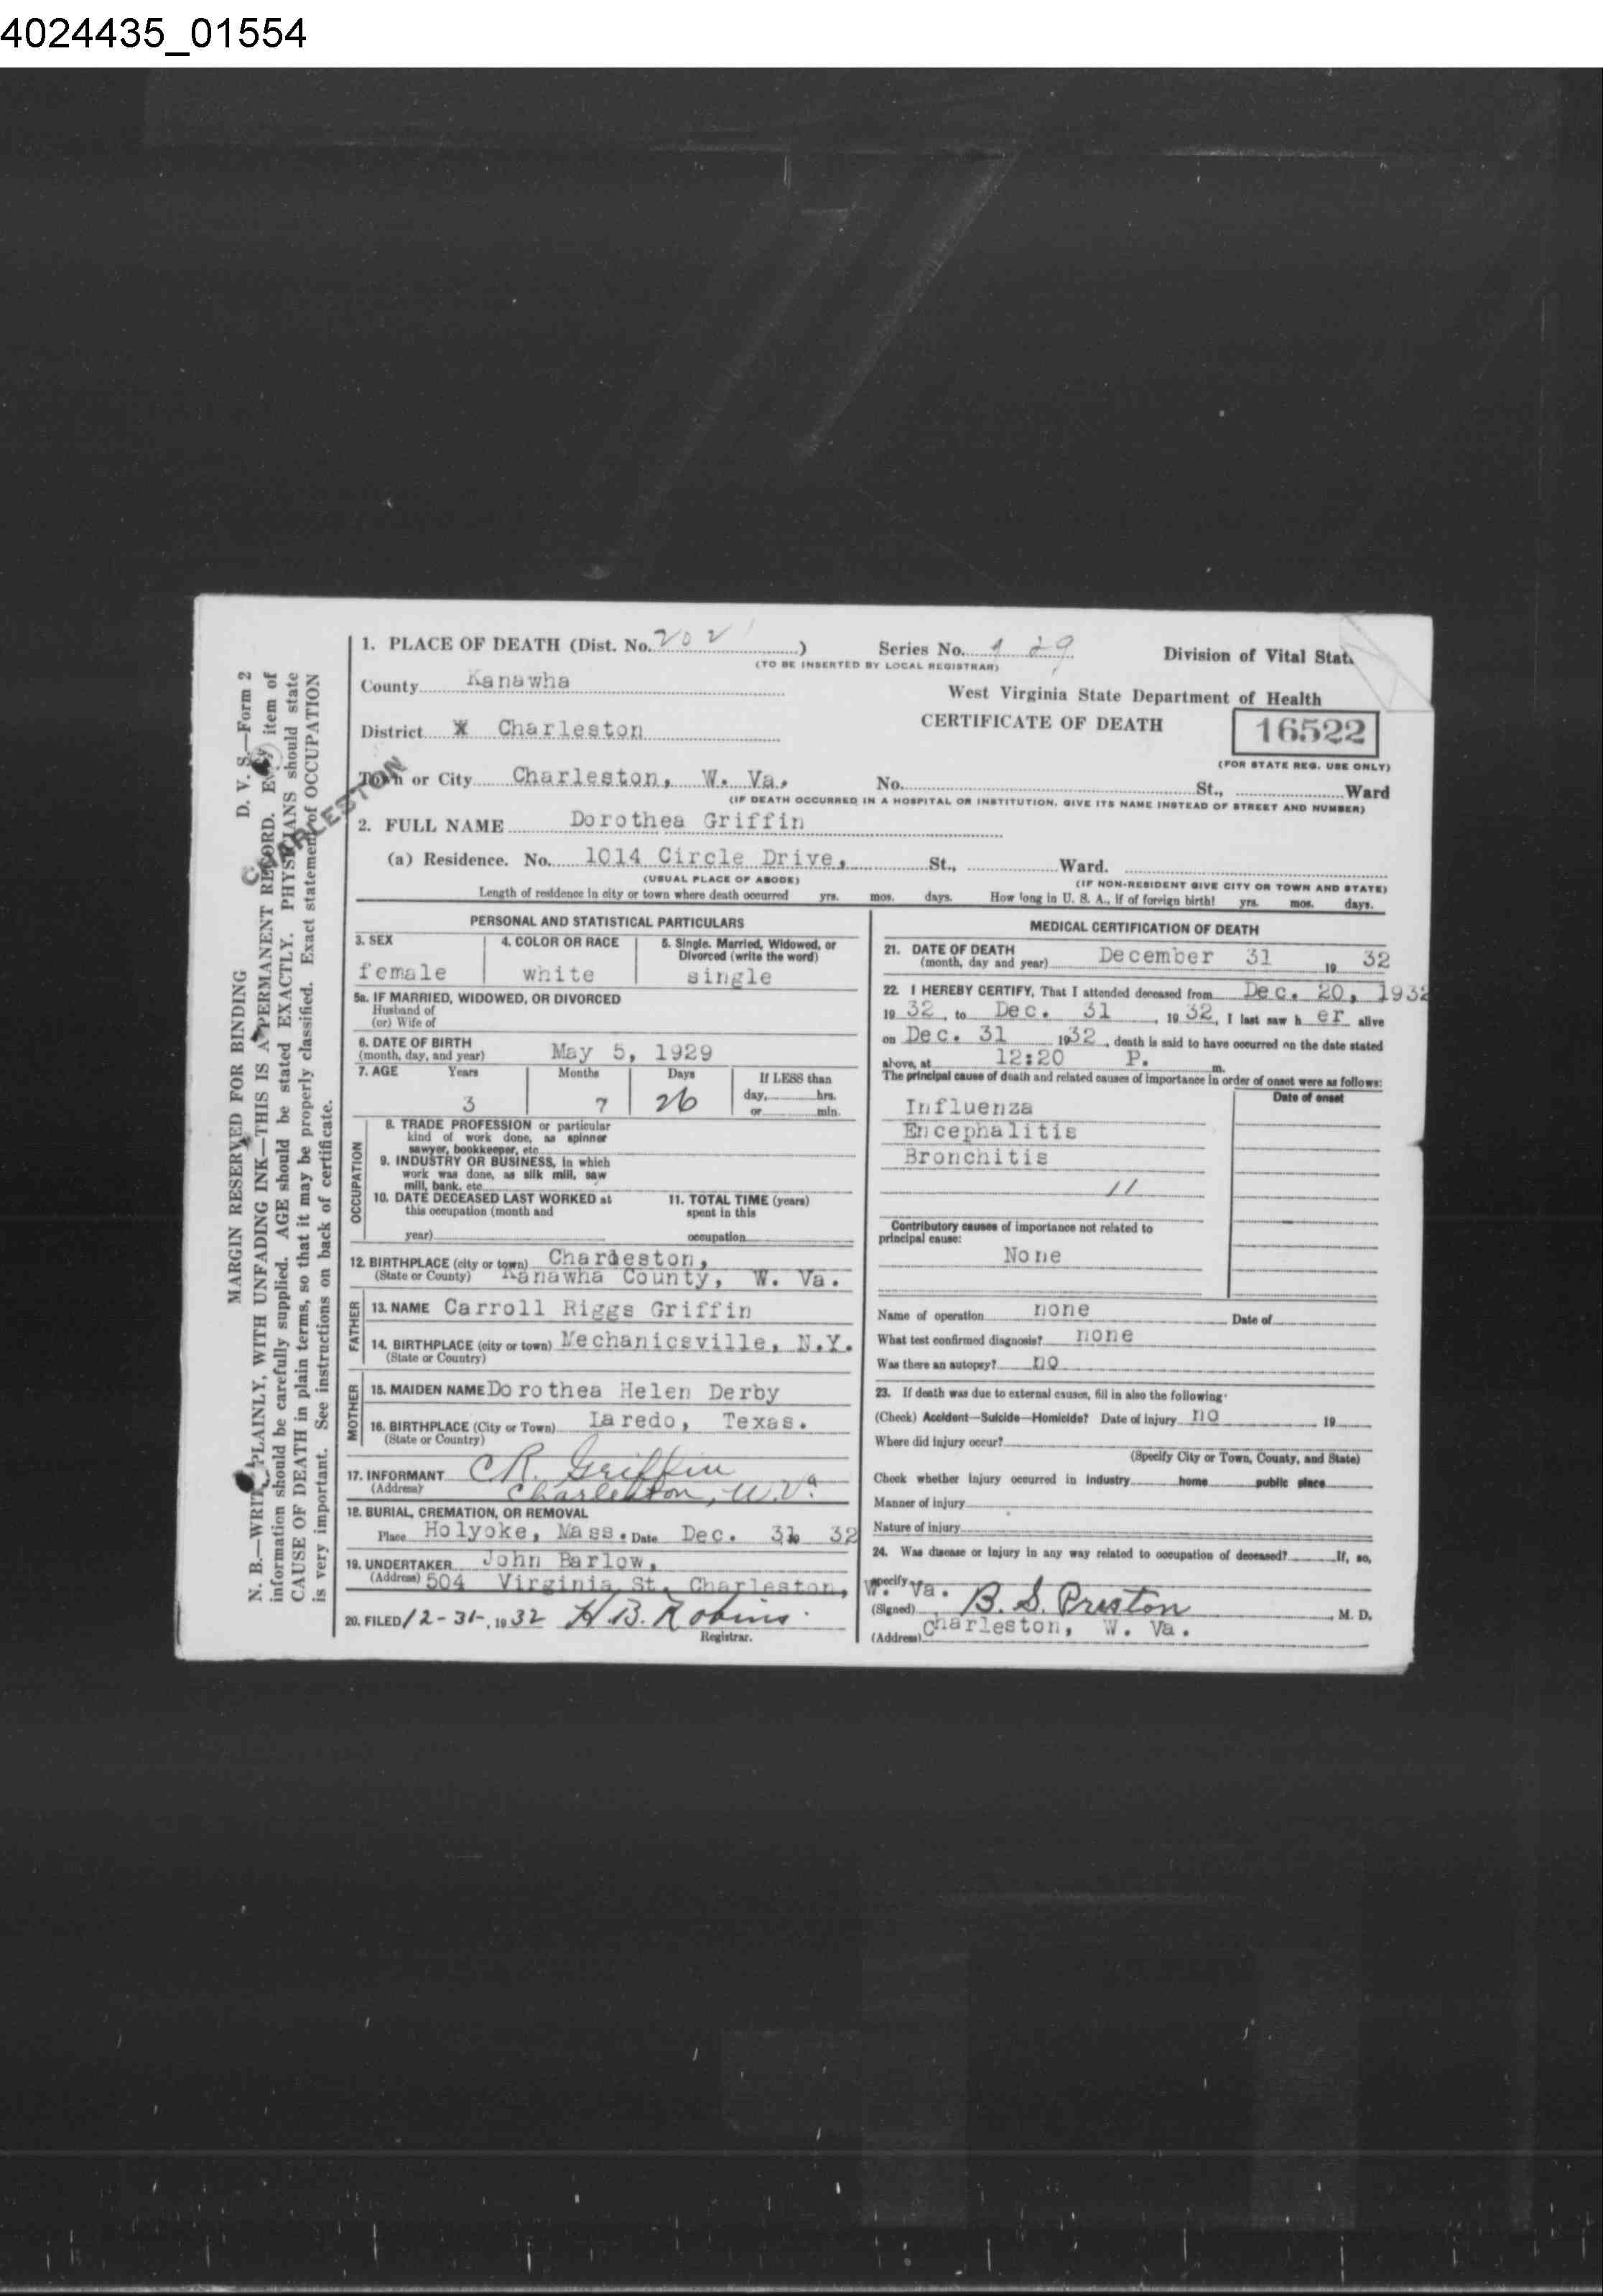 4024435_01554
D. V. S.—Form 2
MARGIN RESERVED FOR BINDING
N. B.—WRITE PLAINLY, WITH UNFADING INK—THIS IS A PERMANENT RECORD. Every item of
information should be carefully supplied. AGE should be stated EXACTLY. PHYSICIANS should state
CAUSE OF DEATH in plain terms, so that it may be properly classified. Exact statement of OCCUPATION
is very important. See instructions on back of certificate.
CHARLESTON
1. PLACE OF DEATH (Dist. No. 202 ) Series No. 29
(TO BE INSERTED BY LOCAL REGISTRAR)
Division of Vital Stat.
County Kanawha
West Virginia State Department of Health
District X Charleston
CERTIFICATE OF DEATH
16522
(FOR STATE REG. USE ONLY)
Town or City Charleston, W. Va. No. St., Ward
(IF DEATH OCCURRED IN A HOSPITAL OR INSTITUTION, GIVE ITS NAME INSTEAD OF STREET AND NUMBER)
2. FULL NAME Dorothea Griffin
(a) Residence. No. 1014 Circle Drive, St., Ward.
(USUAL PLACE OF ABODE) (IF NON-RESIDENT GIVE CITY OR TOWN AND STATE)
Length of residence in city or town where death occurred yrs. mos. days. How long in U. S. A., if of foreign birth? yrs. mos. days.
PERSONAL AND STATISTICAL PARTICULARS
3. SEX 4. COLOR OR RACE 5. Single. Married, Widowed, or
Divorced (write the word)
female white single
5a. IF MARRIED, WIDOWED, OR DIVORCED
Husband of
(or) Wife of
6. DATE OF BIRTH
(month, day, and year) May 5, 1929
7. AGE Years Months Days If LESS than
day, hrs.
3 7 26 or min.
OCCUPATION
8. TRADE PROFESSION or particular
kind of work done, as spinner
sawyer, bookkeeper, etc.
9. INDUSTRY OR BUSINESS, in which
work was done, as silk mill, saw
mill, bank, etc.
10. DATE DECEASED LAST WORKED at 11. TOTAL TIME (years)
this occupation (month and spent in this
year) occupation
12. BIRTHPLACE (city or town) Chardeston,
(State or County) Kanawha County, W. Va.
FATHER
13. NAME Carroll Riggs Griffin
14. BIRTHPLACE (city or town) Mechanicsville, N.Y.
(State or Country)
MOTHER
15. MAIDEN NAME Dorothea Helen Derby
16. BIRTHPLACE (City or Town) Laredo, Texas.
(State or Country)
17. INFORMANT C R. Griffin
(Address) Charleston, W. Va.
18. BURIAL, CREMATION, OR REMOVAL
Place Holyoke, Mass. Date Dec. 31 32
19. UNDERTAKER John Barlow,
(Address) 504 Virginia St. Charleston, W. Va.
20. FILED 12-31-, 1932 H. B. Robins.
Registrar.
MEDICAL CERTIFICATION OF DEATH
21. DATE OF DEATH
(month, day and year) December 31 19 32
22. I HEREBY CERTIFY, That I attended deceased from Dec. 20, 1932
19 32, to Dec. 31, 19 32, I last saw h er alive
on Dec. 31 1932, death is said to have occurred on the date stated
above, at 12:20 P. m.
The principal cause of death and related causes of importance in order of onset were as follows:
Date of onset
Influenza
Encephalitis
Bronchitis
11
Contributory causes of importance not related to
principal cause:
None
Name of operation none Date of
What test confirmed diagnosis? none
Was there an autopsy? no
23. If death was due to external causes, fill in also the following:
(Check) Accident—Suicide—Homicide? Date of injury no 19
Where did injury occur?
(Specify City or Town, County, and State)
Check whether injury occurred in industry home public place
Manner of injury
Nature of injury
24. Was disease or injury in any way related to occupation of deceased? If, so,
specify
(Signed) B. S. Preston, M. D.
(Address) Charleston, W. Va.